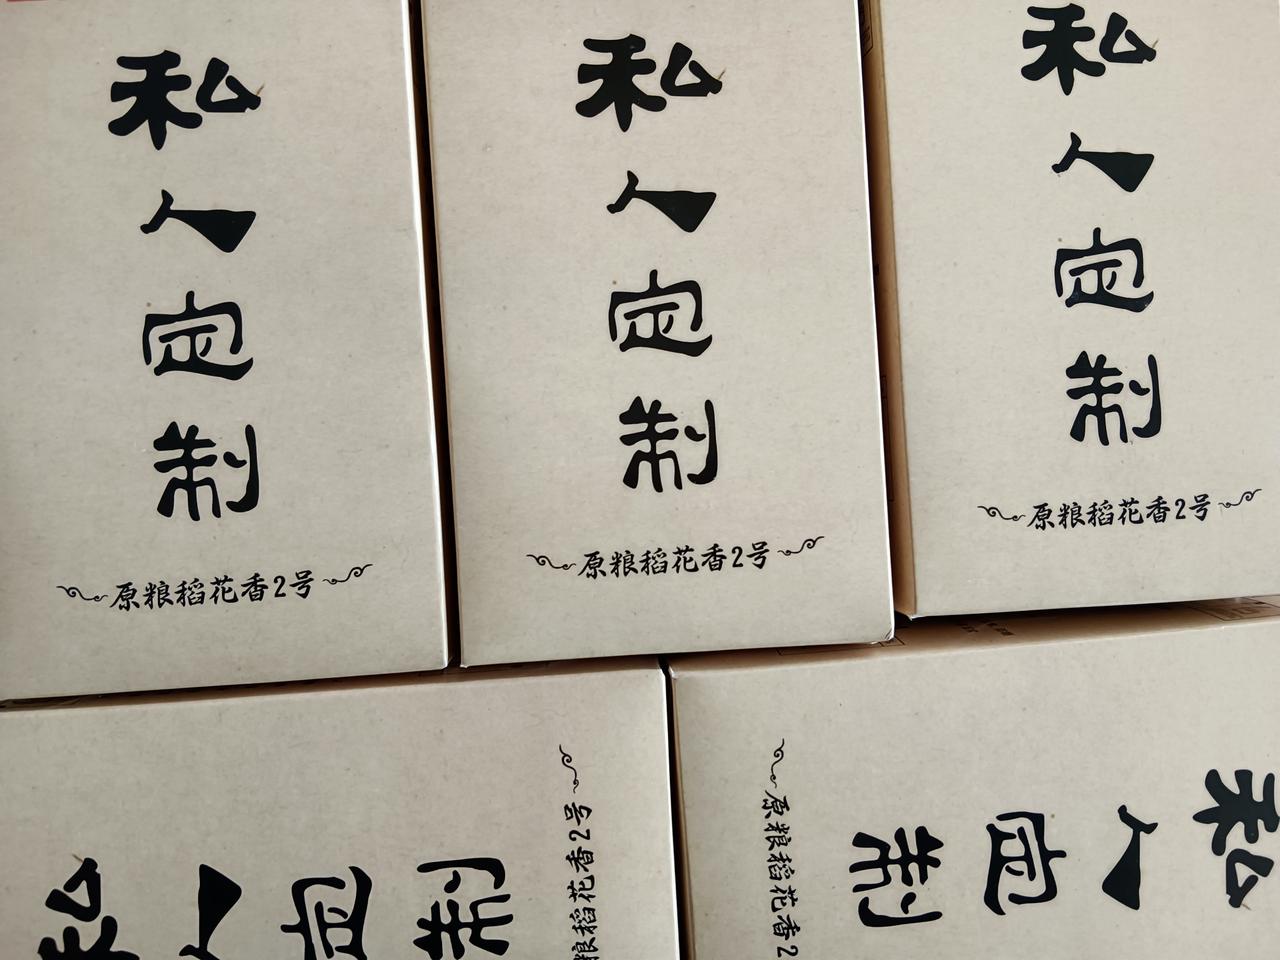 私人定制
原粮稻花香2号
私人定制
原粮稻花香2号
私人定制
原粮稻花香2号
私人定制
粮稻花香2号
私人定制
原粮稻花香2